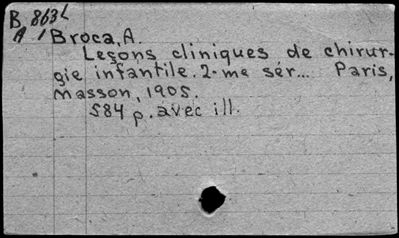 B 863L
A 1 Broca, A.
Leşons cliniques de chirur-
gie infantile. 2-me sér... Paris,
Masson, 1905.
584 p. avec ill.